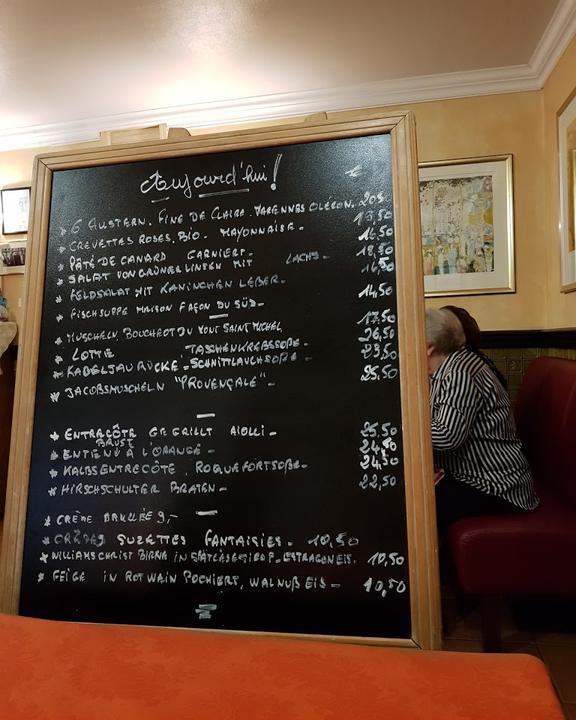 Aujourd'hui! €
* 6 AUSTERN. FINE DE CLAIRE. MARENNES OLÉRON. 20,5
* CREVETTES ROSES. BIO. MAYONNAISE. 19,50
* PÂTÉ DE CANARD GARNIERT. 16,50
* SALAT VON GRÜNER LINSEN MIT LACHS. 18,50
* FELDSALAT MIT KANINCHEN LEBER. 16,50
* FISCHSUPPE MAISON FAÇON DU SÜD. 14,50
* MUSCHELN, BOUCHOT DU MONT SAINT MICHEL 17,50
* LOTTE TASCHENKREBSSOßE. 26,50
* KABELJAU RÜCKE. SCHNITTLAUCHSOßE. 23,50
* JACOBSMUSCHELN "PROVENÇALE". 25,50
* ENTRECÔTE GEGRILLT AIOLLI. 25,50
* ENTEN BRUST À L'ORANGE. 24,50
* KALBSENTRECÔTE, ROQUEFORTSOßE. 24,50
* HIRSCHSCHULTER BRATEN. 22,50
* CRÈME BRULÉE 9,-
* CRÊPES SUZETTES FANTAISIES. 10,50
* WILLIAMS CHRIST BIRNE IN ESTRAGONEIS. 10,50
* FEIGE IN ROTWAIN POCHIERT, WALNUß EIS. 10,50